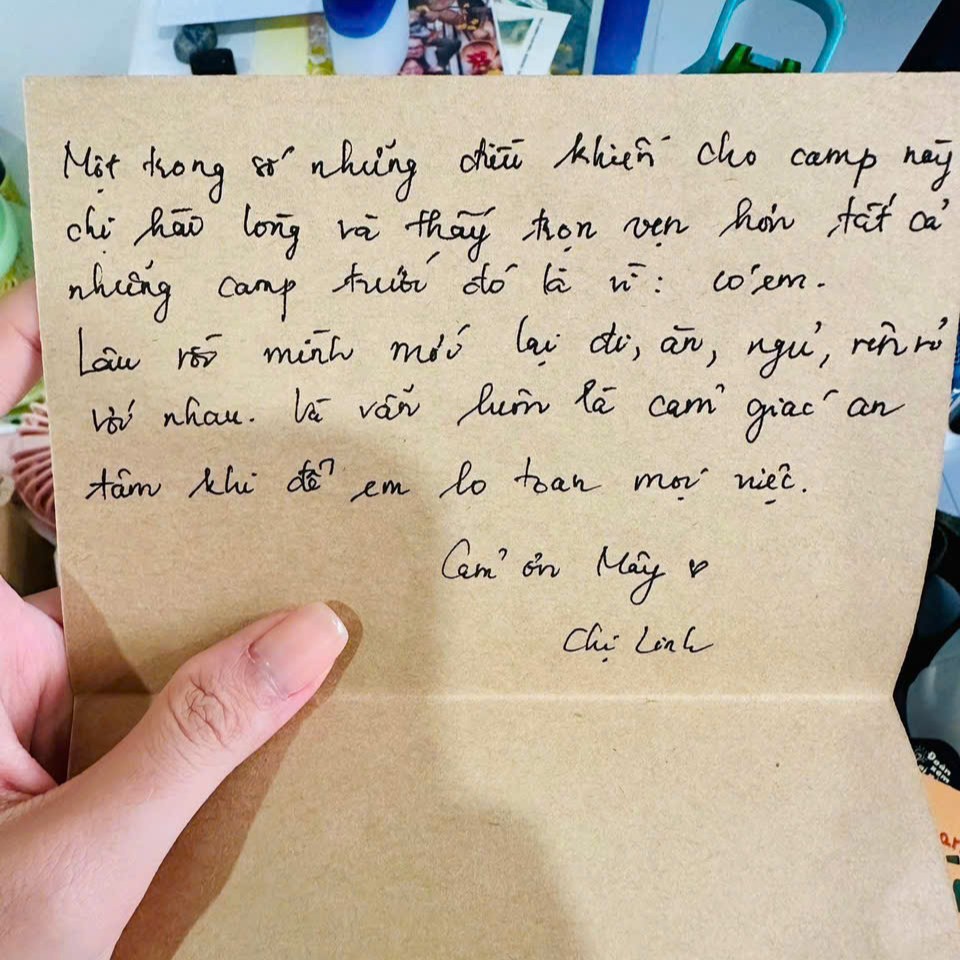 Một trong số những điều khiến cho camp này
chị hài lòng và thấy trọn vẹn hơn tất cả
những camp trước đó là vì: có em.
Lâu rồi mình mới lại đi, ăn, ngủ, rên rỉ
với nhau. Và vẫn luôn là cảm giác an
tâm khi để em lo toan mọi việc.
Cảm ơn Mây ♥
Chị Linh
Đoán